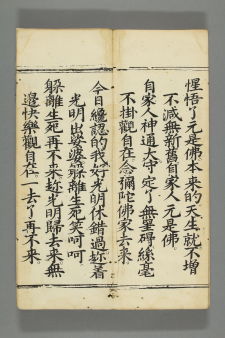 惺悟了元是佛本来的天生就不增
不减無新舊自家人元是佛
自家人神通大守定了無罣碍絲毫
不掛觀自在念彌陀佛家去来
今日纔認的我好光明休錯過趂着
光明出娑婆躲離生死笑呵呵
躲離生死再不来趂光明歸去来無
邉快樂觀自在一去了再不来